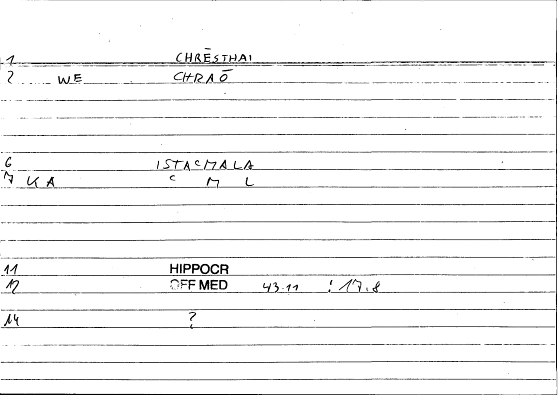 1 CHRĒSTHAI
2 WE CHRAŌ
6 ISTAʿMALA
7 KA ʿ M L
11 HIPPOCR
12 OFF MED 43.11 : 17.8
14 ?